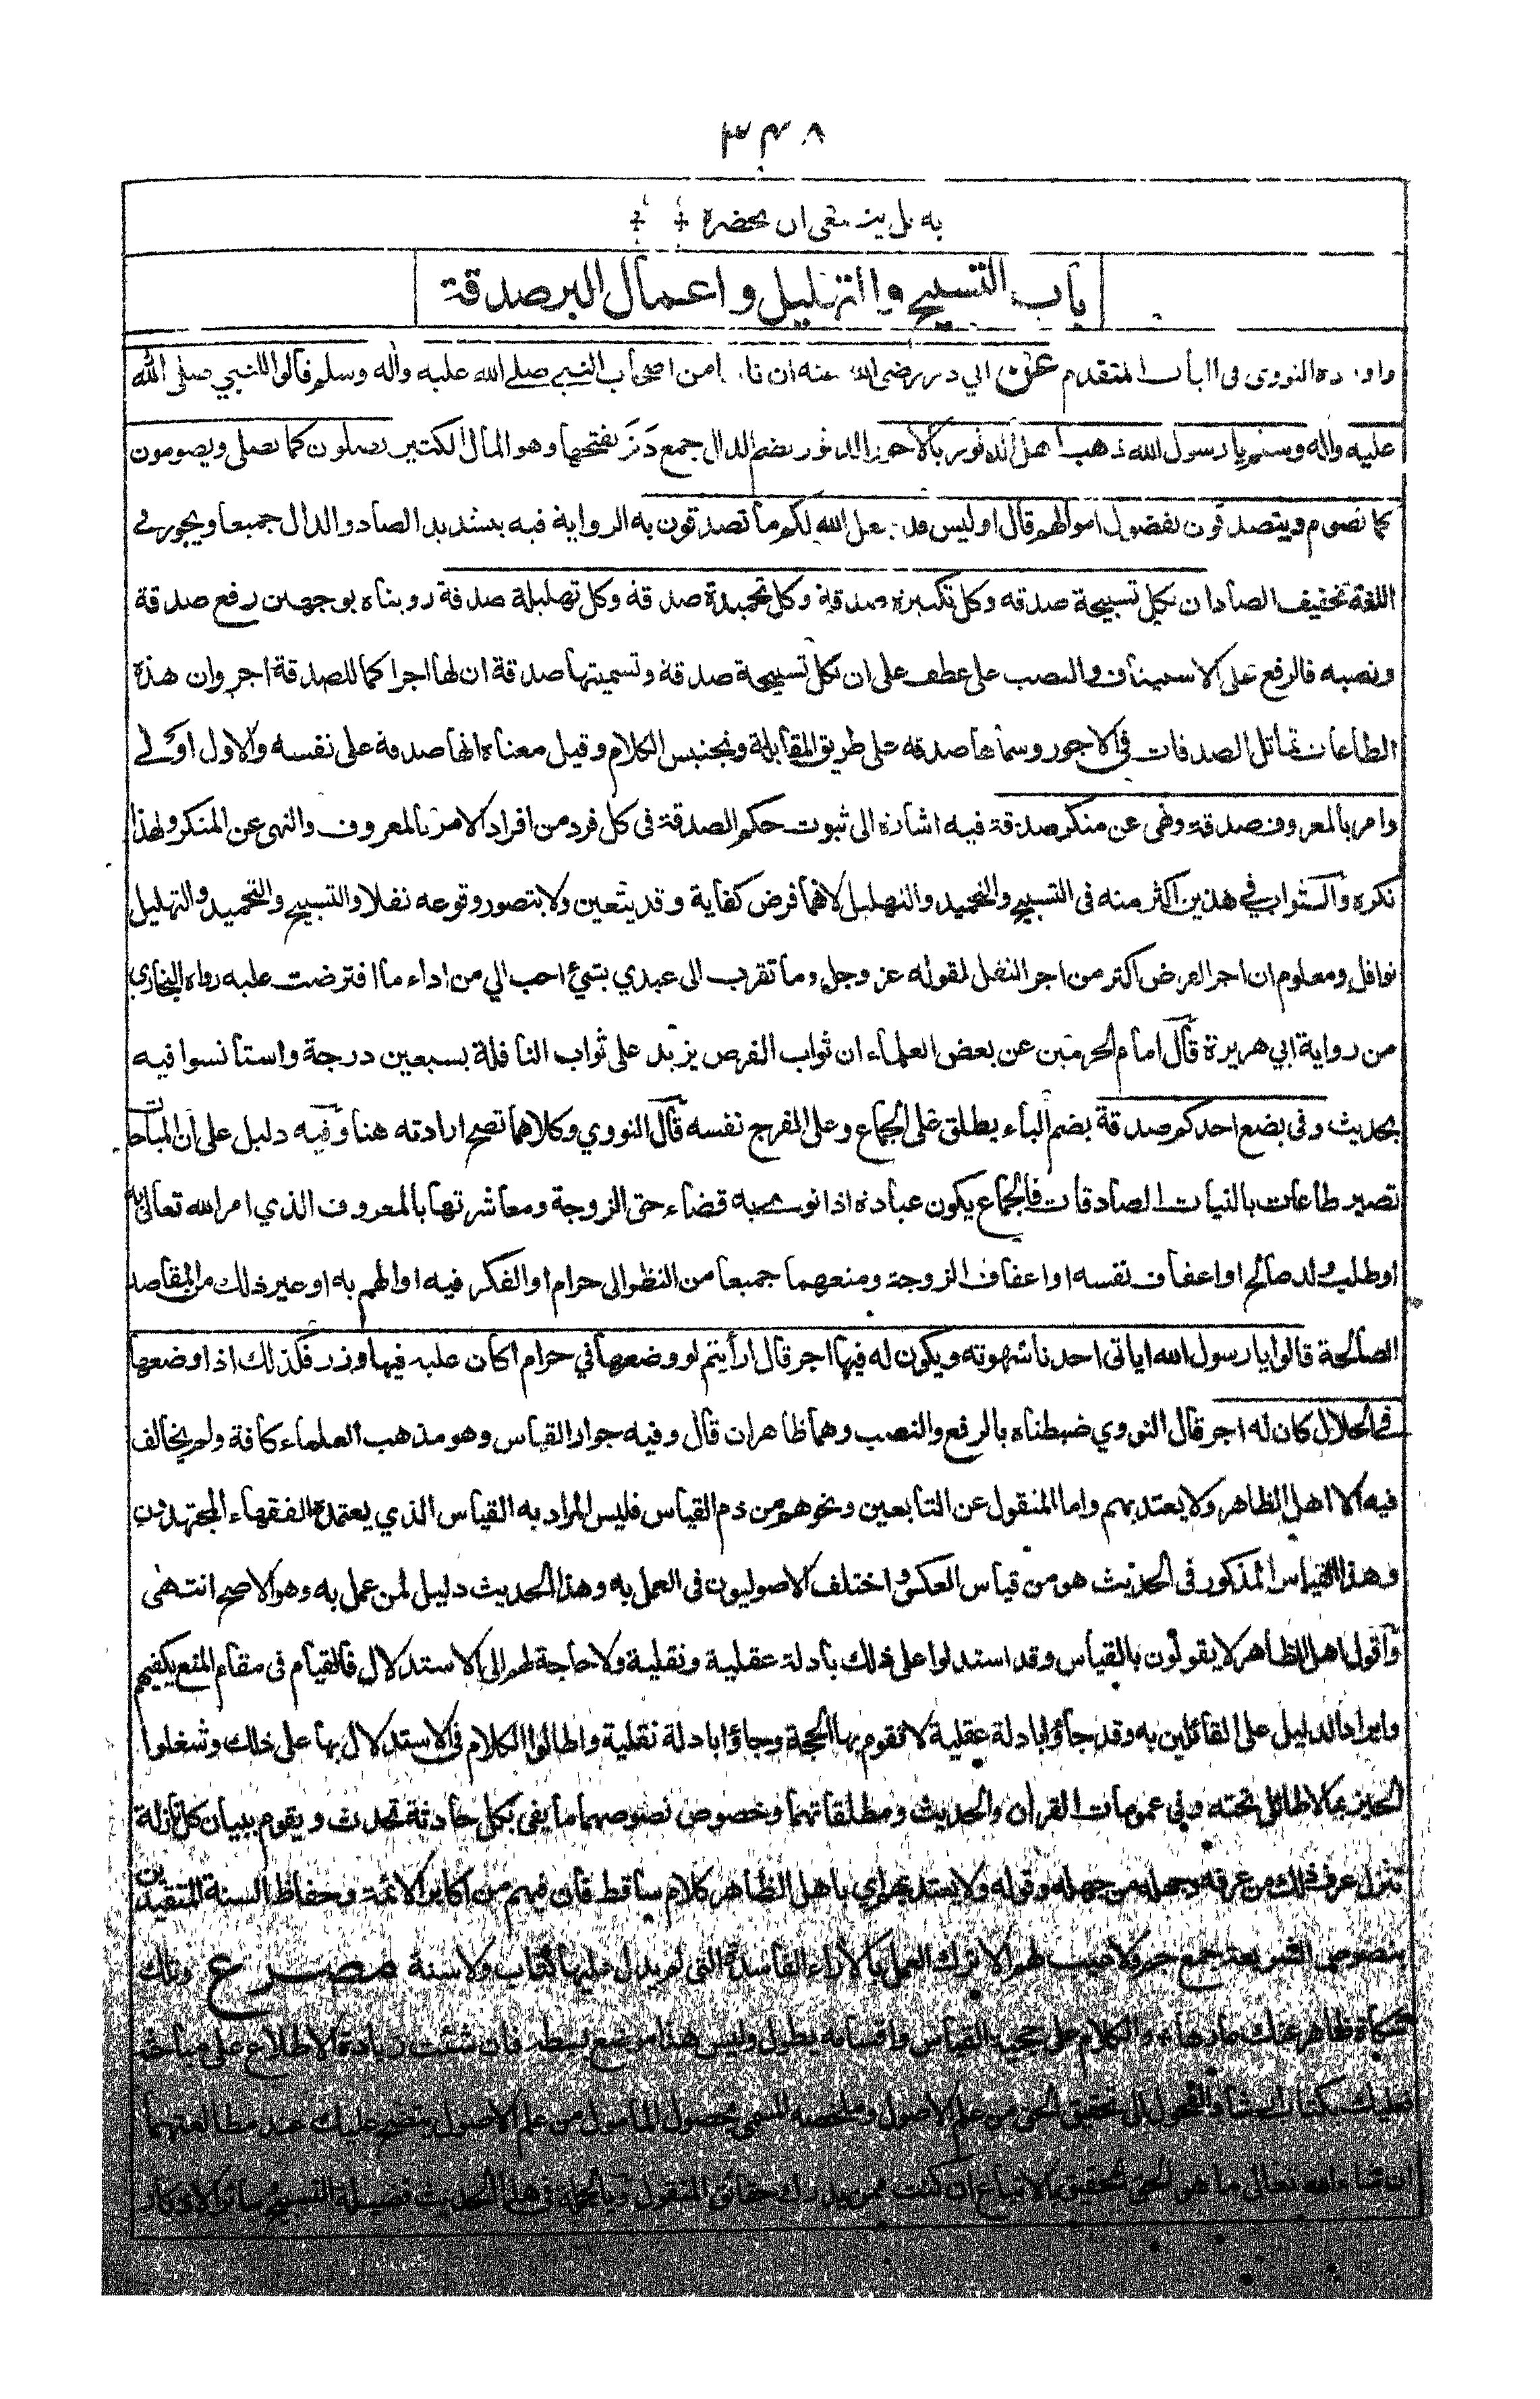 ٣٤٨
به بل ينبغي ان يحضره
باب التسبيح والتهليل واعمال البر صدقة
واورده النووى فى الباب المتقدم عن ابي ذر رضى الله عنه ان ناسا من اصحاب النبي صلے الله عليه واٰله وسلم قالوا للنبي صلى الله
عليه واٰله وسلم يا رسول الله ذهب اهل الدثور بالاجور الدثور بضم الدال جمع دَثَر بفتحها وهو المال الكثير يصلون كما نصلى ويصومون
كما نصوم ويتصدقون بفضول اموالهم قال اوليس قد جعل الله لكم ما تصدقون به الرواية فيه بتشديد الصاد والدال جميعا ويجوز فے
اللغة تخفيف الصاد ان بكل تسبيحة صدقه وكل تكبيرة صدقة وكل تحميدة صدقة وكل تهليلة صدقة رويناه بوجهين رفع صدقة
ونصبه فالرفع على الاستيناف والنصب على عطف على ان بكل تسبيحة صدقة وتسميتها صدقة ان لها اجرا كما للصدقة اجر وان هذه
الطاعات تماثل الصدقات فى الاجور وسماها صدقه على طريق المقابلة وتجنيس الكلام وقيل معناه انها صدقة على نفسه والاول اولے
وامر بالمعروف صدقة ونهى عن منكر صدقة فيه اشارة الى ثبوت حكم الصدقة فى كل فرد من افراد الامر بالمعروف والنهى عن المنكر ولهذا
نكره والثواب في هذين اكثر منه فى التسبيح والتحميد والتهليل لانهما فرض كفاية وقد يتعين ولا يتصور وقوعه نفلا والتسبيح والتحميد والتهليل
نوافل ومعلوم ان اجر الفرض اكثر من اجر النفل لقوله عز وجل وما تقرب الى عبدي بشيء احب الي من اداء ما افترضت عليه رواه البخاري
من رواية ابي هريرة قال امام الحرمين عن بعض العلماء ان ثواب الفرض يزيد على ثواب النافلة بسبعين درجة واستأنسوا فيه
بحديث وفى بضع احدكم صدقة بضم الباء يطلق على الجماع وعلى الفرج نفسه قال النووي وكلاهما تصح ارادته هنا وفيه دليل على ان المباحات
تصير طاعات بالنيات الصادقات فالجماع يكون عبادة اذا نوى به قضاء حق الزوجة ومعاشرتها بالمعروف الذي امر الله تعالى به
او طلب ولد صالح او اعفاف نفسه او اعفاف الزوجة ومنعهما جميعا من النظر الى حرام او الفكر فيه او الهم به او غير ذلك من المقاصد
الصالحة قالوا يا رسول الله اياتى احدنا شهوته ويكون له فيها اجر قال ارأيتم لو وضعها في حرام اكان عليه فيها وزر فكذلك اذا وضعها
في الحلال كان له اجر قال النووي ضبطناه بالرفع والنصب وهما ظاهران قال وفيه جواز القياس وهو مذهب العلماء كافة ولم يخالف
فيه الا اهل الظاهر ولا يعتد بهم واما المنقول عن التابعين ونحوهم من ذم القياس فليس المراد به القياس الذي يعتمده الفقهاء المجتهدون
وهذا القياس المذكور فى الحديث هو من قياس العكس واختلف الاصوليون فى العمل به وهذا الحديث دليل لمن عمل به وهو الاصح انتهى
واقول اهل الظاهر لا يقولون بالقياس وقد استدلوا على ذلك بادلة عقلية ونقلية ولا حاجة لهم الى الاستدلال فالقيام فى مقام المنع يكفيهم
وايراد الدليل على القائلين به وقد جاؤا بادلة عقلية لا تقوم بها الحجة وجاؤا بادلة نقلية واطالوا الكلام فى الاستدلال بها على ذلك وشغلوا
الحيز بما لا طائل تحته وفي عمومات القرآن والحديث ومطلقاتهما وخصوص نصوصهما ما يفى بكل حادثة تحدث ويقوم ببيان كل نازلة
تنزل عرف ذلك من عرفه وجهله من جهله وقوله ولا يعتد بهم اي باهل الظاهر كلام ساقط فان فيهم من اكابر الائمة وحفاظ السنة المتقيدين
بنصوص الشريعة جمع جم ولا عيب لهم الا ترك العمل بالآراء الفاسدة التى لم يدل عليها كتاب ولا سنة مصرع وتلك
شكاة ظاهر عنك عارها والكلام على حجية القياس واقسامه يطول وليس هذا موضع بسطه فان شئت زيادة الاطلاع على مباحثه
فعليك بكتاب ارشاد الفحول الى تحقيق الحق من علم الاصول وملخصه المسمى بحصول المأمول من علم الاصول يتضح عليك عند مطالعتهما
ان شاء الله تعالى ما هو الحق الحقيق بالاتباع ان كنت ممن يدرك حقائق المنقول وبالجملة فى هذا الحديث فضيلة التسبيح وسائر الاذكار